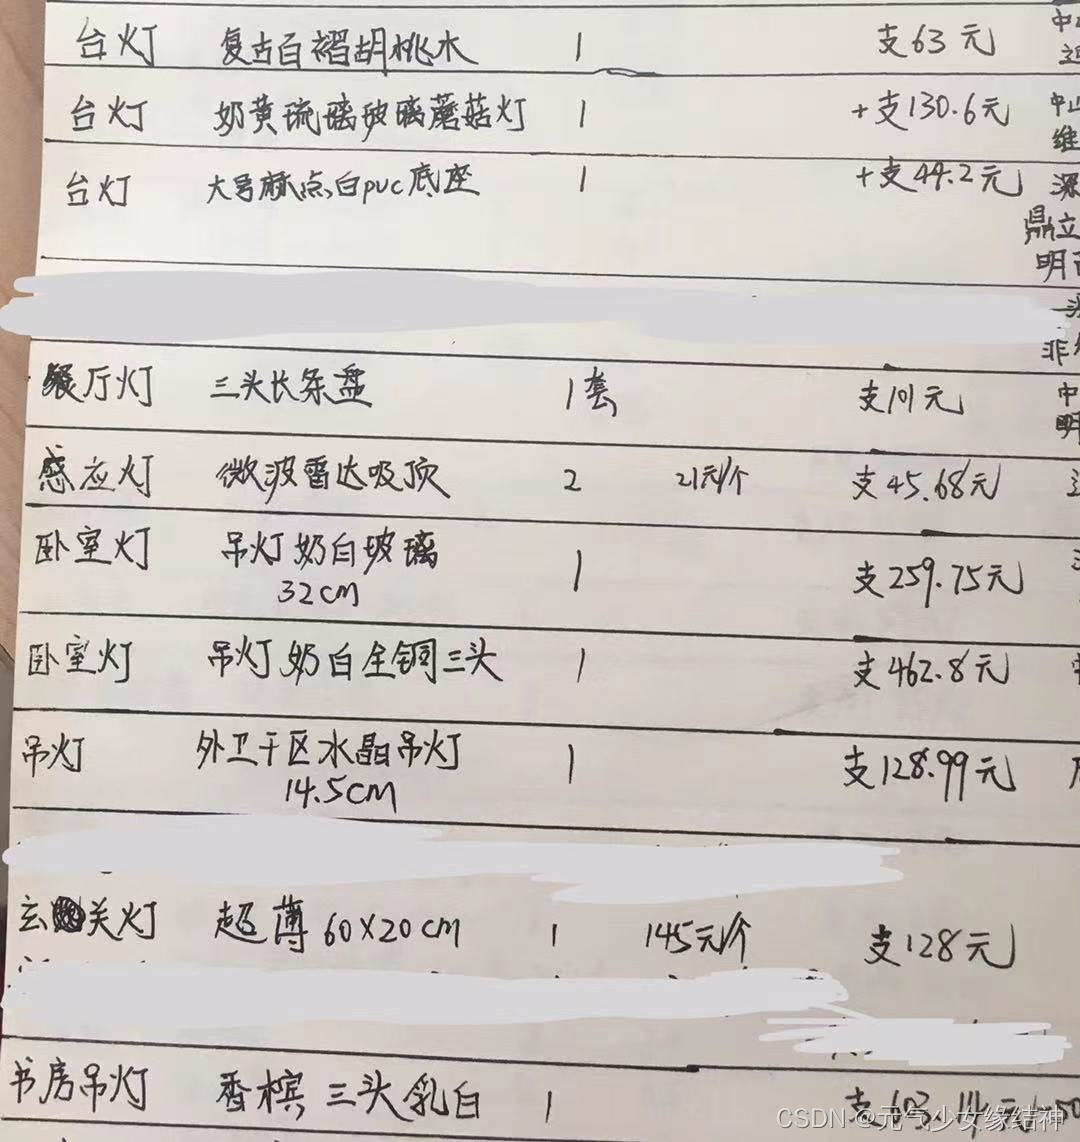 台灯 复古百褶胡桃木 1 支63元
台灯 奶黄琉璃玻璃蘑菇灯 1 +支130.6元
台灯 大号麻点白pvc底座 1 +支44.2元
鼎立
明
非
餐厅灯 三头长条盘 1套 支101元 中
明
感应灯 微波雷达吸顶 2 21元/个 支45.68元
卧室灯 吊灯奶白玻璃 1 支259.75元
32cm
卧室灯 吊灯奶白全铜三头 1 支462.8元
吊灯 外卫干区水晶吊灯 1 支128.99元
14.5cm
玄关灯 超薄60×20cm 1 145元/个 支128元
书房吊灯 香槟三头乳白 1 支603.14元
CSDN @元气少女缘结神